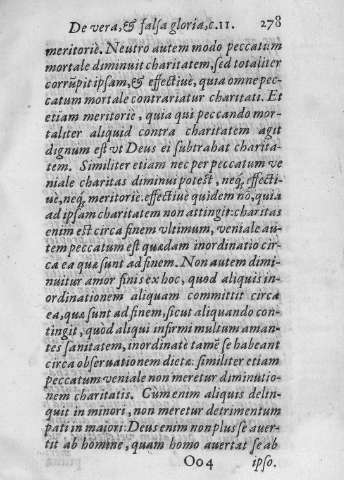 De vera, & falsa gloria, c. 11. 278
meritoriè. Neutro autem modo peccatum
mortale diminuit charitatem, sed totaliter
corrūpit ipsam, & effectiuè, quia omne pec-
catum mortale contrariatur charitati. Et
etiam meritoriè, quia qui peccando mor-
taliter aliquid contra charitatem agit
dignum est vt Deus ei subtrahat charita-
tem. Similiter etiam nec per peccatum ve
niale charitas diminui potest, neq; effecti-
uè, neq, meritoriè. effectiuè quidem nō, quia
ad ipsam charitatem non attingit: charitas
enim est circa finem vltimum, veniale au-
tem peccatum est quædam inordinatio cir-
ca ea quæ sunt ad finem. Non autem dimi-
nuitur amor finis ex hoc, quod aliquis in-
ordinationem aliquam committit circa
ea, quæ sunt ad finem, sicut aliquando con-
tingit, quòd aliqui infirmi multum aman-
tes sanitatem, inordinatè tamē se habeant
circa obseruationem dietæ: similiter etiam
peccatum veniale non meretur diminutio-
nem charitatis. Cum enim aliquis delin-
quit in minori, non meretur detrimentum
pati in maiori: Deus enim non plus se auer-
tit ab homine, quam homo auertat se ab
Oo4 ipso.